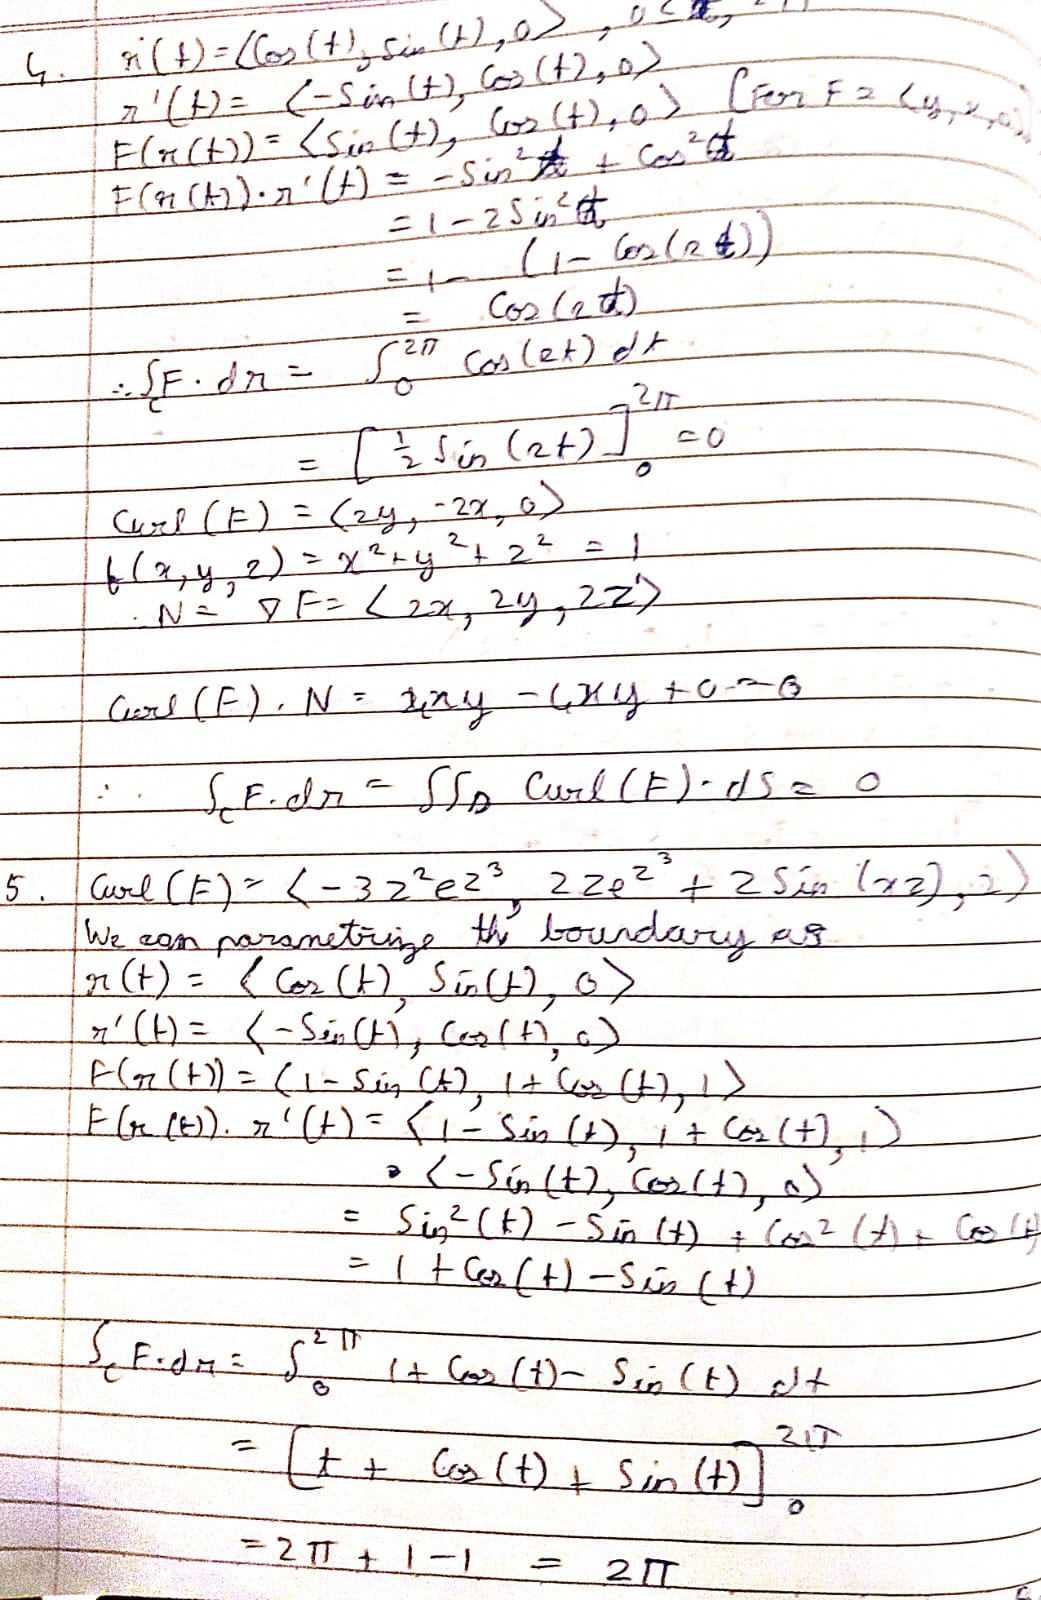 4. r(t) = ⟨Cos(t), Sin(t), 0⟩, 0 ≤ t,
r'(t) = ⟨-Sin(t), Cos(t), 0⟩
F(r(t)) = ⟨Sin(t), Cos(t), 0⟩ [For F = ⟨y, x, 0⟩]
F(r(t)).r'(t) = -Sin²t + Cos²t
= 1 - 2Sin²t
= 1 - (1 - Cos(2t))
= Cos(2t)
∴ ∫_C F.dr = ∫₀^2π Cos(2t) dt
= [½ Sin(2t)]₀^2π = 0
Curl(F) = ⟨2y, -2x, 0⟩
f(x, y, z) = x² + y² + z² = 1
. N = ∇F = ⟨2x, 2y, 2z⟩
Curl(F). N = 4xy - 4xy + 0 = 0
∴ ∫_C F.dr = ∫∫_D Curl(F).dS = 0
5. Curl(F) = ⟨-3z²ez³, 2ze^z³ + 2Sin(xz), 2⟩
We can parametrize the boundary as
r(t) = ⟨Cos(t), Sin(t), 0⟩
r'(t) = ⟨-Sin(t), Cos(t), 0⟩
F(r(t)) = ⟨1 - Sin(t), 1 + Cos(t), 1⟩
F(r(t)). r'(t) = ⟨1 - Sin(t), 1 + Cos(t), 1⟩
• ⟨-Sin(t), Cos(t), 0⟩
= Sin²(t) - Sin(t) + Cos²(t) + Cos(t)
= 1 + Cos(t) - Sin(t)
∫_C F.dr = ∫₀^2π 1 + Cos(t) - Sin(t) dt
= [t + Cos(t) + Sin(t)]₀^2π
= 2π + 1 - 1 = 2π